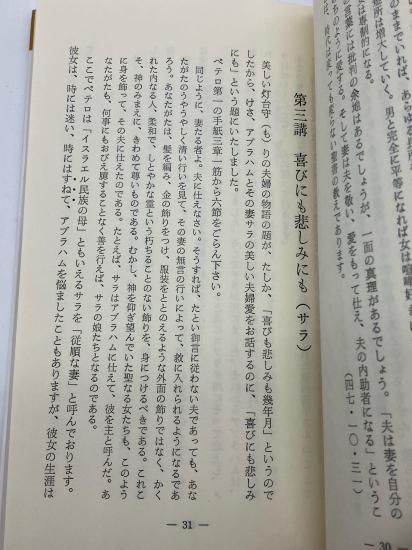 ままでいれば、あらゆる長所
場所は増大していく。男と完全に平等になれば女は喧嘩好き
女は専制的になる。
の言葉には批判の余地はあるでしょうが、一面の真理があるでしょう。「夫は妻を自分の
のように愛する。そして妻は夫を敬い、愛をもって仕え、夫の内助者になる」というこ
は、時代は変っても変らない聖書の教えであります。
（四七・一〇・三一）
30 —
第三講　喜びにも悲しみにも（サラ）
美しい灯台守（も）りの夫婦の物語の題が、たしか、「喜びも悲しみも幾年月」というので
したから、けさ、アブラハムとその妻サラの美しい夫婦愛をお話するのに、「喜びにも悲しみ
にも」という題にいたしました。
ペテロ第一の手紙三章一節から六節をごらん下さい。
同じように、妻たる者よ。夫に仕えなさい。そうすれば、たとい御言に従わない夫であっても、あな
たがたのうやうやしく清い行いを見て、その妻の無言の行いによって、救に入れられるようになるであ
ろう。あなたがたは、髪を編み、金の飾りをつけ、服装をととのえるような外面の飾りではなく、かく
れた内なる人、柔和で、しとやかな霊という朽ちることのない飾りを、身につけるべきである。これこ
そ、神のみまえに、きわめて尊いものである。むかし、神を仰ぎ望んでいた聖なる女たちも、このよう
に身を飾って、その夫に仕えたのである。たとえば、サラはアブラハムに仕えて、彼を主と呼んだ。あ
なたがたも、何事にもおびえ臆することなく善を行えば、サラの娘たちとなるのである。
ここでペテロは「イスラエル民族の母」ともいえるサラを「従順な妻」と呼んでおります。
彼女は、時には迷い、時にはすねて、アブラハムを悩ましたこともありますが、彼女の生涯は
— 31 —